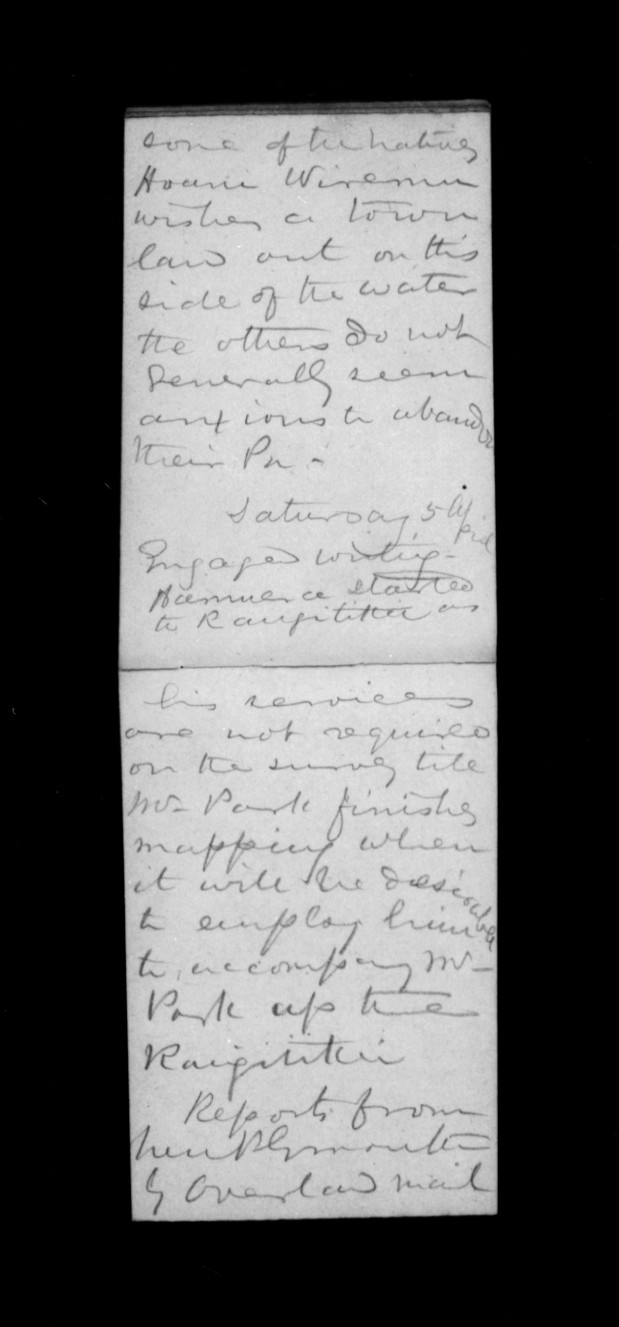 some of the natives
Hoani Wiremu
wishes a town
laid out on this
side of the water
the others do not
generally seem
anxious to abandon
their Pa -
Saturday 5 April
Engaged writing -
started
to Rangitikei as
his services
are not required
on the survey till
Mr Park finishes
mapping when
it will be desirable
to employ him
to accompany Mr
Park up the
Rangitikei
Reports from
New Plymouth
by Overland mail